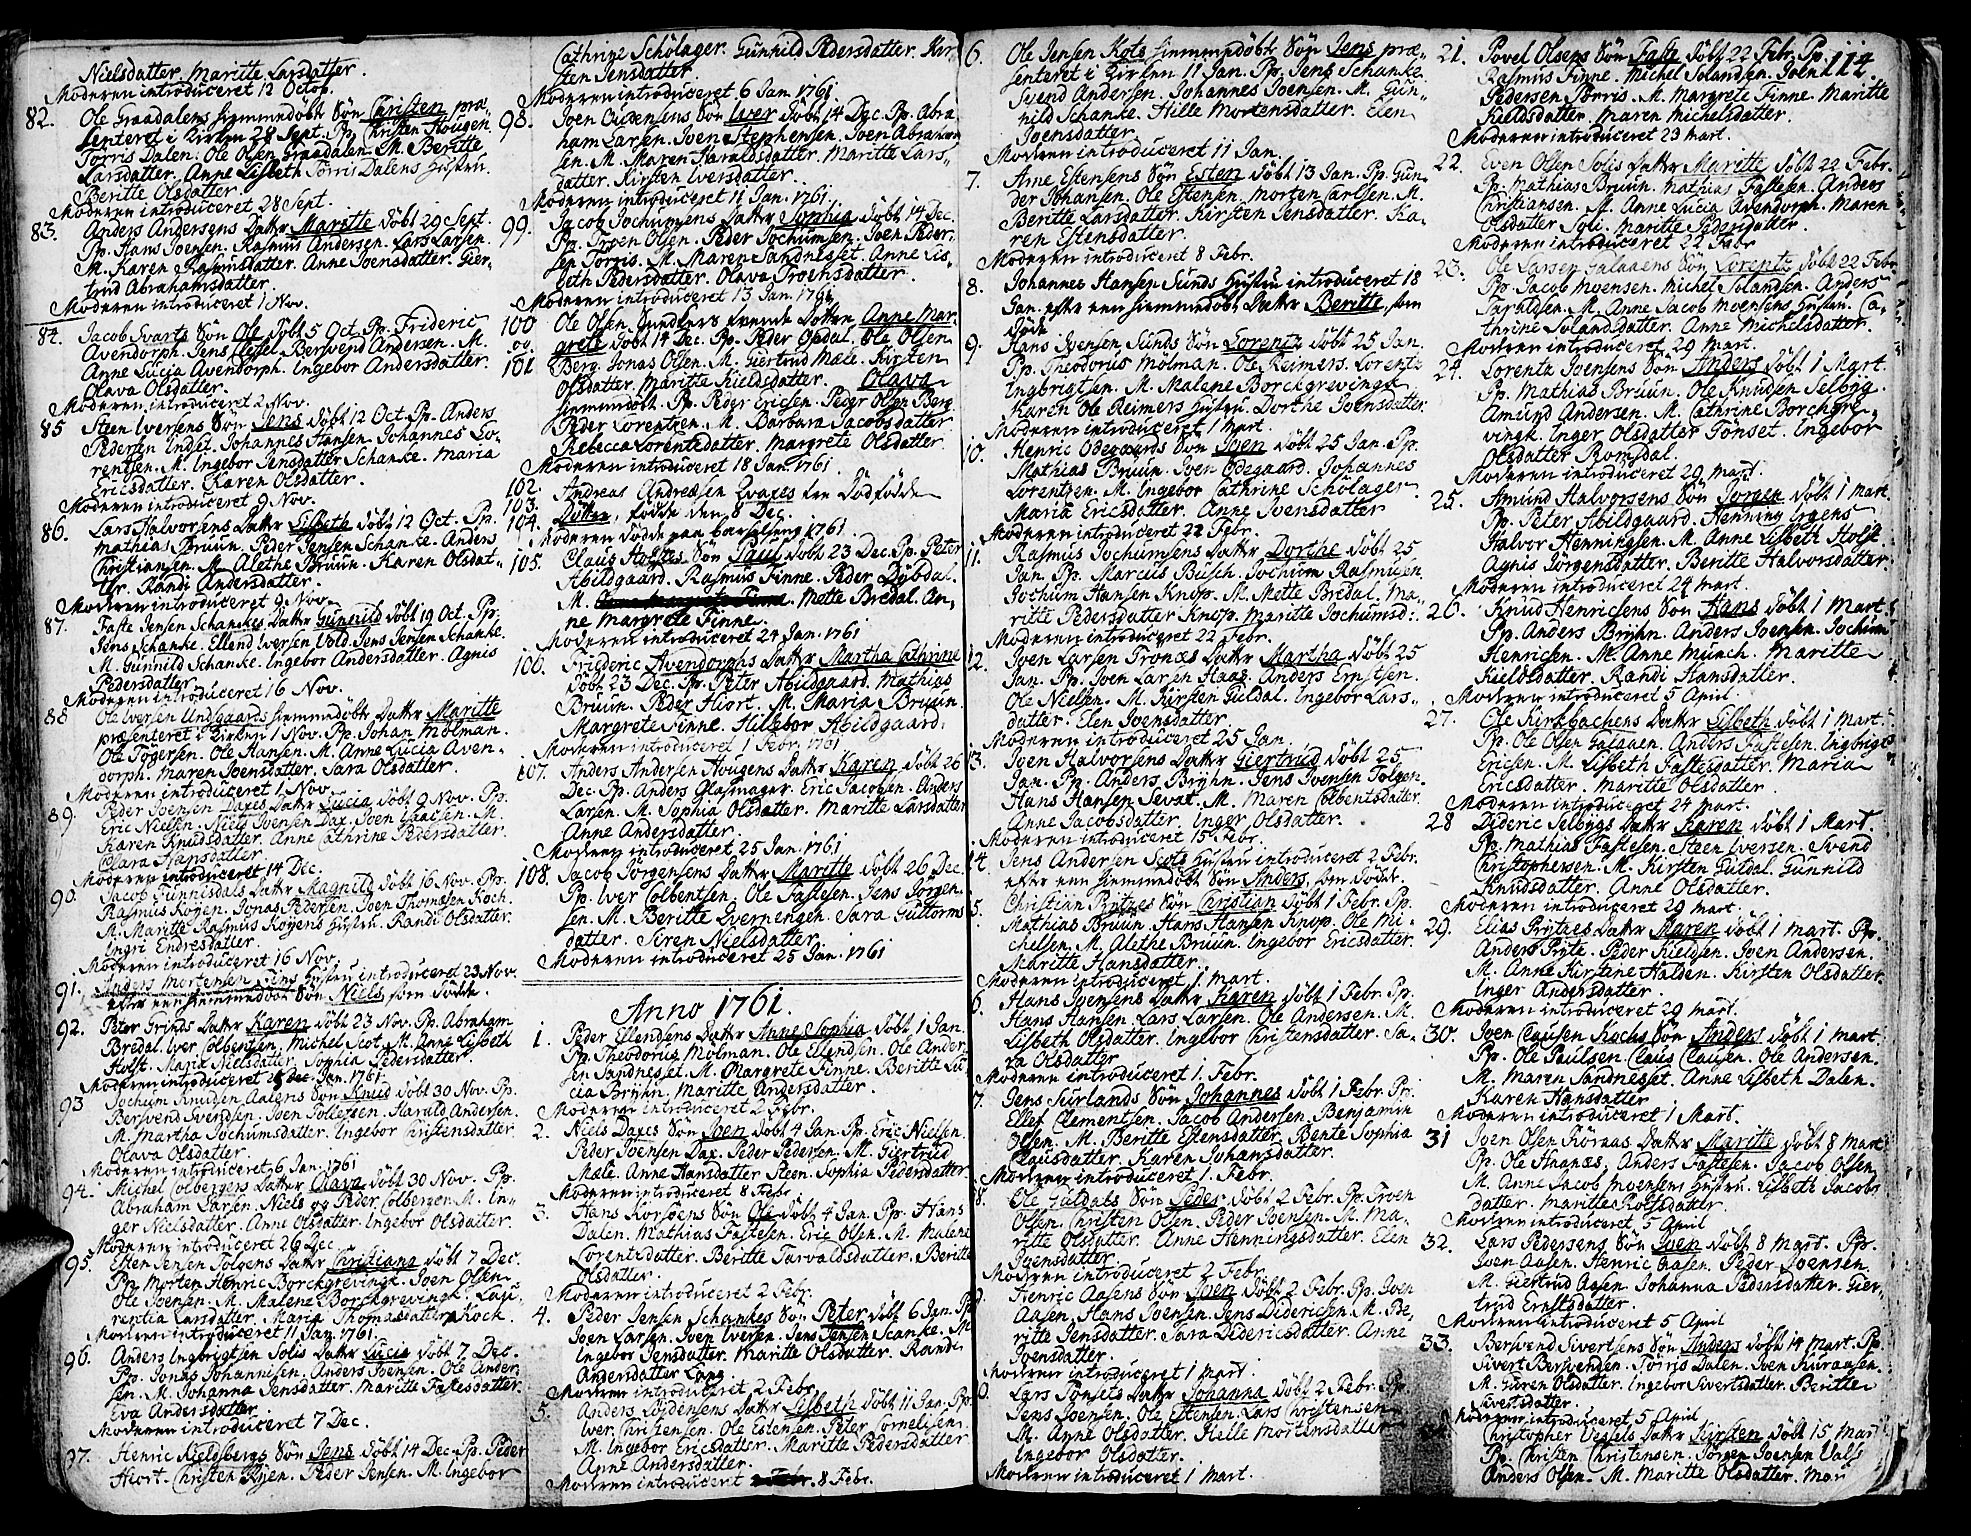 Nielsdatter. Maritte Larsdatter.
Moderen introduceret 12 Octob.
82. Ole Graadalens hiemmedøbte Søn Christen præ-
senteret i Kirken 28 Sept. Pp. Christen Hougen
Torris Dalen. Ole Olsen Graadalen. M. Beritte
Larsdatter. Anne Lisbeth Torris Dalens Hustru.
Beritte Olsdatter.
Moderen introduceret 28 Sept.
83. Anders Andersens Datter Maritte døbt 29 Sept.
Pp. Hans Joensen. Rasmus Andersen. Lars Larsen.
M. Karen Rasmusdatter. Anne Joensdatter. Gier-
trud Abrahamsdatter.
Moderen introduceret 1 Nov.
84. Jacob Svarts Søn Ole døbt 5 Oct. Pp. Frideric
Avendorph. Jens Clessel. Bersvend Andersen. M.
Anne Lucia Avendorph. Ingebor Andersdatter.
Olava Olsdatter.
Moderen introduceret 2 Nov.
85 Steen Iversens Søn Jens døbt 12 Oct. Pp. Anders
Pedersen Indset. Johannes Hansen. Johannes Lo-
rentsen. M. Ingebor Jensdatter Schanke. Maria
Ericsdatter. Karen Olsdatter.
Moderen introduceret 9 Nov.
86. Lars Halvorsens Datter Lisbeth døbt 12 Oct. Pp.
Mathias Bruun. Peder Jensen Schanke. Anders
Christiansen. M. Alethe Bruun. Karen Olsdat-
ter. Randi Andersdatter.
Moderen introduceret 9 Nov.
87. Faste Jensen Schanckes Datter Gunnild døbt 19 Oct. Pp.
Jens Schanke. Ellend Iversen Vold. Jens Jensen Schanke.
M. Gunnild Schanke. Ingebor Andersdatter. Agnis
Pedersdatter.
Moderen introduceret 16 Nov.
88 Ole Iversen Undsgaards hiemmedøbte Datter Maritte
præsenteret i Kirken 1 Nov. Pp. Johan Molman.
Ole Tygersen. Ole Hansen. M. Anne Lucia Aven-
dorph. Maren Joensdatter. Sara Olsdatter.
Moderen introduceret 1 Nov.
89. Peder Joensen Daxes Datter Lucia døbt 9 Nov. Pp.
Eric Nielsen. Niels Joensen Dax. Joen Isacsen. M.
Karen Knudsdatter. Anne Cathrine Pedersdatter.
Clara Hansdatter.
Moderen introduceret 14 Dec.
90. Jacob Funnisdals Datter Magnild døbt 16 Nov. Pp.
Rasmus Kojen. Jonas Pedersen. Joen Thomæsen Koch.
M. Maritte Rasmus Kojens Hustru. Randi Olsdatter.
Ingri Endresdatter.
Moderen introduceret 16 Nov.
91. Anders Mortensen Hustru introduceret 23 Nov.
efter een hiemmedøbt Søn Niels som døde.
92. Peter Grinds Datter Karen døbt 23 Nov. Pp. Abraham
Bredal. Iver Colbentsen. Michel Scot. M. Anne Lisbeth
Holst. Marie Nielsdatter. Sophia Pedersdatter.
Moderen introduceret Jan. 1761.
93 Jochum Knudsen Aalens Søn Knud døbt 30 Nov. Pp.
Bersvend Svendsen. Joen Tollefsen. Harald Andersen.
M. Martha Jochumsdatter. Ingebor Christensdatter.
Olava Olsdatter.
Moderen introduceret 6 Jan. 1761
94. Michel Colbergens Datter Olava døbt 30 Nov. Pp.
Abraham Larsen. Niels og Peder Colbergen. M. In-
ger Nielsdatter. Anne Olsdatter. Ingebor Olsdatter.
Moderen introduceret 26 Dec.
95. Esten Jensen Folgens Datter Christiana døbt 7 Dec.
Pp. Morten Henric Borckgrevingk. Joen Olsen.
Ole Joensen. M. Malene Borckgrevingk. Lau-
rentia Larsdatter. Maria Thomasdatter Kock.
Moderen introduceret 11 Jan. 1761.
96. Anders Ingbrigtsen Solis Datter Lucia døbt 7 Dec.
Pp. Jonas Johannissen. Anders Joensen. Ole Ander-
sen. M. Johanna Jensdatter. Maritte Fastesdatter.
Eva Andersdatter.
Moderen introduceret 7 Dec.
97. Henric Kieldsbergs Søn Jens døbt 14 Dec. Pp. Peder
Hiort. Christen Kojen. Peder Jensen. M. Ingebor
Cathrine Schölager. Gunhild Pedersdatter. Kir-
sten Jensdatter.
Moderen introduceret 6 Jan. 1761
98. Joen Ouensens Søn Iver døbt 14 Dec. Pp. Abra
ham Larsen. Joen Stephensen. Joen Abraham
sen. M. Maren Haraldsdatter. Maritte Lars-
datter. Kirsten Iversdatter.
Moderen introduceret 11 Jan. 1761.
99. Jacob Jochumsens Datter Sophia døbt 14 Dec.
Pp. Troen Olsen. Peder Jochumsen. Joen Peder-
sen Torris. M. Maren Sandnesset. Anne Lis-
beth Pedersdatter. Olava Troensdatter.
Moderen introduceret 13 Jan. 1761
100 og 101 Ole Olsen Smedlers tvende Døttre Anne Mar-
grete døbt 14 Dec. Pp. Peder Opdal. Ole Olsen
Berg. Jonas Olsen. M. Giertrud Mæle. Kirsten
Olsdatter. Maritte Kieldsdatter. Olava
hiemmedøbt. Pp. Peder Ericsen. Peder Olsen Berg.
Peder Lorentzen. M. Barbara Jacobsdatter
Rebecca Lorentsdatter. Margrete Olsdatter.
Moderen introduceret 18 Jan. 1761.
102. 103. 104. Andreas Andreæsen Qvaxes tre dødfødde
Døttre, fødde den 8 Dec.
Moderen dødde paa barselseng 1761.
105. Claus Holstes Søn Paul døbt 23 Dec. Pp. Peter
Abildgaard. Rasmus Finne. Peder Dybdal.
M. Mette Bredal. An-
ne Margrete Finne.
Moderen introduceret 24 Jan. 1761
106. Friederic Avendorphs Datter Martha Cathrine
døbt 23 Dec. Pp. Peter Abildgaard. Mathias
Bruun. Peder Hiort. M. Maria Bruun.
Margrete Finne. Hilebor Abildgaard.
Moderen introduceret 1 Febr. 1761
107. Anders Andersen Hougens Datter Karen døbt 26
Dec. Pp. Anders Glasmager. Eric Jacobsen. Anders
Larsen. M. Sophia Olsdatter. Maritte Larsdatter
Anne Andersdatter.
Moderen introduceret 25 Jan. 1761
108. Jacob Jörgensens Datter Maritte døbt 26 Dec.
Pp. Iver Colbentsen. Ole Fastesen. Jens Jörgen-
sen. M. Beritte Qvernengen. Sara Guttorms
datter. Siren Nielsdatter.
Moderen introduceret 25 Jan. 1761
Anno 1761.
1. Peder Ellendsens Datter Anne Sophia døbt 1 Jan.
Pp. Theodorus Molman. Ole Ellendsen. Ole Ander-
sen Sandnesset. M. Margrete Finne. Beritte Lu-
cia Bryhn. Maritte Andersdatter.
Moderen introduceret 2 Febr.
2. Niels Daxes Søn Joen døbt 4 Jan. Pp. Eric Nielsen.
Peder Joensen Dax. Peder Pedersen. M. Giertrud
Mæle. Anne Hansdatter Steen. Sophia Pedersdatter
Moderen introduceret 8 Febr.
3. Hans Korsoens Søn Ole døbt 4 Jan. Pp. Hans
Dalen. Mathias Fastesen. Eric Olsen. M. Malene
Lorentsdatter. Beritte Tarvaldsdatter. Beritte
Olsdatter.
Moderen introduceret 2 Febr.
4. Peder Jensen Schankes Søn Peter døbt 6 Jan. Pp
Joen Larsen. Joen Iversen. Jens Jensen Scanke. M
Ingebor Jensdatter. Maritte Olsdatter. Randi
Andersdatter Lang.
Moderen introduceret 2 Febr.
5. Anders Lordensens Datter Lisbeth døbt 11 Jan. Pp.
Iver Christensen. Ole Estensen. Peter Cornelisen.
M. Ingebor Ericsdatter. Maritte Pedersdatter
Anne Andersdatter.
Moderen introduceret 8 Febr.
6. Ole Jensen Kots hiemmedøbte Søn Jens præ-
senteret i Kirken 11 Jan. Pp. Jens Schanke.
Svend Andersen. Johannes Joensen. M. Gun-
hild Schanke. Hille Mortensdatter. Elen
Joensdatter.
Moderen introduceret 11 Jan.
7. Arne Estensens Søn Esten døbt 13 Jan. Pp. Gun-
der Johansen. Ole Estensen. Morten Carlsen. M.
Beritte Larsdatter. Kirsten Jensdatter. Ka-
ren Estensdatter.
Moderen introduceret 8 Febr.
8. Johannes Hansen Sunds Hustru introduceret 18
Jan. efter een hiemmedøbt Datter Beritte, som
døde
9. Hans Joensen Sunds Søn Lorentz døbt 25 Jan.
Pp. Theodorus Molman. Ole Reimers. Lorentz
Ingbrigtsen. M. Malene Borckgrevingk
Karen Ole Reimers Hustru. Dorthe Joensdatter.
Moderen introduceret 1 Mart.
10. Henric Odegaards Søn Joen døbt 25 Jan. Pp.
Mathias Bruun. Joen Ødegaard. Johannes
Lorentzen. M. Ingebor Cathrine Schölager.
Maria Ericsdatter. Anne Svensdatter
Moderen introduceret 22 Febr.
11. Rasmus Jochumsens Datter Dorthe døbt 25
Jan. Pp. Marcus Busch. Jochum Rasmusen.
Jochum Hansen Knop. M. Mette Bredal. Ma-
ritte Pedersdatter Knop. Maritte Jochumsd:
Moderen introduceret 22 Febr.
12. Joen Larsen Tronæs Datter Martha døbt 25
Jan. Pp. Joen Larsen Haas. Anders Ernstsen.
Ole Nielsen. M. Kirsten Guldal. Ingebor Lars-
datter. Elen Joensdatter.
Moderen introduceret 25 Jan.
13. Joen Halvorsens Datter Giertrud døbt 25
Jan. Pp. Anders Bryhn. Jens Joensen Folgen.
Hans Hansen Sevat. M. Maren Colbentsdatter.
Anne Jacobsdatter. Inger Olsdatter.
Moderen introduceret 15 Febr.
14. Jens Andersen Scots Hustru introduceret 2 Febr.
efter een hiemmedøbt Søn Anders, som døde.
5. Christian Prytzes Søn Christian døbt 1 Febr. Pp.
Mathias Bruun. Hans Hansen Knop. Ole Mi-
chelsen. M. Alethe Bruun. Ingebor Ericsdatter.
Maritte Hansdatter.
Moderen introduceret 1 Mart.
6. Hans Joensens Datter Karen døbt 1 Febr. Pp.
Hans Hansen. Lars Larsen. Ole Andersen. M.
Lisbeth Olsdatter. Ingebor Christensdatter. Sa-
ra Olsdatter
Moderen introduceret 1. Febr.
7. Jens Furlands Søn Johannes døbt 1 Febr. Pp.
Ellef Clementsen. Jacob Andersen. Benjamin
Olsen. M. Beritte Estensdatter. Bente Sophia
Clausdatter. Karen Johansdatter.
Moderen introduceret 1. Febr.
8. Ole Guldals Søn Peder døbt 2 Febr. Pp. Troen
Olsen. Christen Olsen. Peder Joensen. M. Ma-
ritte Olsdatter. Anne Henningsdatter. Elen
Joensdatter
Moderen introduceret 2 Febr.
Henric Aasens Søn Joen døbt 2 Febr. Pp. Joen
Aasen. Hans Joensen. Jens Didericsen. M. Be-
ritte Jensdatter. Sara Didericsdatter. Anne
Joensdatter.
Moderen introduceret 1 Mart.
0. Lars Tonsets Datter Johanna døbt 2 Febr. Pp.
Jens Joensen. Ole Estensen. Lars Christensen
M. Anne Olsdatter. Helle Mortensdatter
Ingebor Olsdatter.
Moderen introduceret 1 Mart.
114.
21. Povel Olsens Søn Faste døbt 22 Febr. Pp.
Rasmus Finne. Michel Solandsen. Joen
Pedersen Torris. M. Margrete Finne. Maritte
Kieldsdatter. Maren Michelsdatter.
Moderen introduceret 23 Mart.
22. Even Olsen Solis Datter Maritte døbt 22 Febr.
Pp. Mathias Bruun. Mathias Fastesen. Anders
Christiansen. M. Anne Lucia Avendorph. Maren
Olsdatter Soli. Maritte Pedersdatter.
Moderen introduceret 22 Febr
23. Ole Larsen Galaaens Søn Lorentz døbt 22 Febr.
Pp. Jacob Moensen. Michel Solandsen. Anders
Taraldsen. M. Anne Jacob Moensens Hustru. Ca-
thrine Solandsdatter. Anne Michelsdatter.
Moderen introduceret 29 Mart.
24. Lorentz Joensens Søn Anders døbt 1 Mart.
Pp. Mathias Bruun. Ole Knudsen Selbyg.
Amund Andersen. M. Cathrine Borchgre-
vingk. Inger Olsdatter Tönset. Ingebor
Olsdatter Romsdal.
Moderen introduceret 29 Mart.
25. Amund Halvorsens Søn Jörgen døbt 1 Mart
Pp. Peter Abildgaard. Henning Irgens
Halvor Henningsen. M. Anne Lisbeth Holst
Agnis Jörgensdatter. Beritte Halvorsdatter.
Moderen introduceret 24 Mart.
26. Knud Henricsens Søn Hans døbt 1 Mart.
Pp. Anders Bryhn. Anders Joensen. Jochum
Henricsen. M. Anne Munch. Maritte
Kieldsdatter. Randi Hansdatter.
Moderen introduceret 5 April.
27. Ole Kirkbachens Datter Lisbeth døbt 1 Mart.
Pp. Ole Olsen Galaaen. Anders Fastesen. Ingbrigt
Ericsen. M. Lisbeth Fastesdatter. Maria
Ericsdatter. Maritte Olsdatter.
Moderen introduceret 24 Mart.
28 Dideric Selbygs Datter Karen døbt 1 Mart.
Pp. Mathias Fastesen. Steen Iversen. Svend
Christophersen. M. Kirsten Guldal. Gunnild
Knudsdatter. Anne Olsdatter.
Moderen introduceret 29 Mart.
29. Elias Prytzes Datter Maren døbt 1 Mart. Pp.
Anders Pryts. Peder Kieldsen. Joen Andersen.
M. Anne Kirstine Halden. Kirsten Olsdatter.
Inger Andersdatter.
Moderen introduceret 29 Mart.
30. Joen Clausen Kochs Søn Anders døbt 1 Mart.
Pp. Ole Paulsen. Claus Clausen. Ole Andersen.
M. Maren Sandnesset. Anne Lisbeth Dalen.
Karen Hansdatter
Moderen introduceret 1 Mart.
31 Joen Olsen Körnas Datter Maritte døbt 8 Mart
Pp. Ole Hnanæs. Anders Fastesen. Jacob Olsen
M. Anne Jacob Moensens Hustru. Lisbeth Jacobs
datter. Maritte Rolfsdatter.
Moderen introduceret 5 April
32. Lars Pedersens Søn Joen døbt 8 Mart. Pp.
Joen Aasen. Henric Aasen. Peder Joensen.
M. Giertrud Aasen. Johanna Pedersdatter. Gier-
trud Ernstsdatter
Moderen introduceret 5 April
33. Bersvend Sivertsens Søn Anders døbt 14 Mart. Pp
Sivert Bersvendsen. Törris Dalen. Joen Kuraasen.
M. Guren Olsdatter. Ingebor Sivertsdatter. Beritte
Sivertsdatter.
Moderen introduceret 5 April
Christopher Vessels Datter Kirsten døbt 15 Mart
Pp. Christen Christensen. Jörgen Joensen Vals
Anders Olsen. M. Maritte Olsdatter. Mar